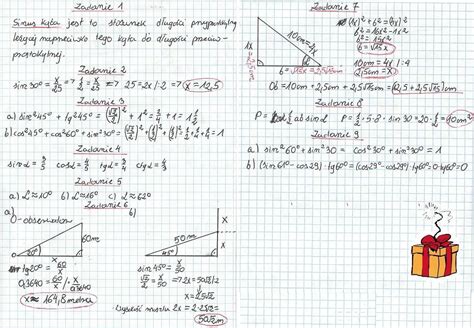 Zadanie 1
Sinus kąta jest to stosunek długości przyprostokątnej
leżącej naprzeciwko tego kąta do długości przeciw-
prostokątnej.
Zadanie 2
sin30° = x/25 => 1/2 = x/25 => 25 = 2x |:2 => x = 12,5
Zadanie 3
a) sin²45° + tg²45° = (√2/2)² + 1² = 2/4 + 1 = 1 1/2
b) cos²45° + cos²60° + sin²30° = (√2/2)² + (1/2)² + (1/2)² = 2/4 + 1/4 + 1/4 = 1
Zadanie 4
sinα = 3/5 cosα = 4/5 tgα = 3/4 ctgα = 4/3
Zadanie 5
a) α ≈ 10° b) α ≈ 16° c) α ≈ 62°
Zadanie 6
a)
O-obserwator
60m
O 20° x
tg20° = 60/x
0,3640 = 60/x /·x /:0,3640
x ≈ 164,8 metra
b)
x
50m
x
45°
sin45° = x/50
√2/2 = x/50 => 2x = 50√2 |:2
x = 25√2
Wysokość masztu 2x = 2·25√2 =
50√2 m
Zadanie 7
1x = 2,5cm
10cm = 4x
b = √15x = 2,5√15cm
(1x)² + b² = (4x)²
b² = 16x² - 1x²
b² = 15x²
b = √15x
10cm = 4x |:4
2,5cm = x
Ob = 10cm + 2,5cm + 2,5√15cm = (12,5 + 2,5√15) cm
Zadanie 8
P = 1/2 ab sinα P = 1/2 · 5 · 8 · sin30 = 20 · 1/2 = 10cm²
Zadanie 9
a) sin²60° + sin²30 = cos²30° + sin²30° = 1
b) (sin61° - cos29°) · tg60° = (cos29° - cos29°) · tg60° = 0 · tg60° = 0